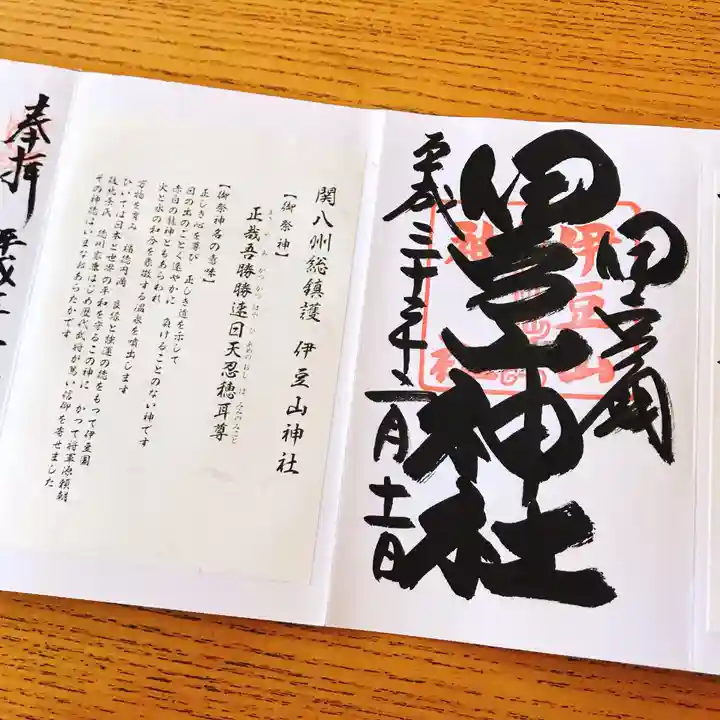 伊豆國
伊豆山神社
伊豆山
神社
平成三十年
月十一日
関八州総鎮護 伊豆山神社
【御祭神】
正哉吾勝勝速日天忍穂耳尊
まさ や あ かつ かつ はや ひ あめのおし ほ みみのみこと
【御祭神名の意味】
正しき心を尊び 正しき道を示して
日の出のごとく速やかに 負けることのない神です
赤白の龍神ともあらわれ
火と水の和合を象徴する温泉を噴出します
万物を育み 福徳円満 良縁と強運の徳をもって伊豆国
ひいては日本と世界の平和を守るこの神に かつて将軍源頼朝
後北条氏 徳川家康はじめ歴代武将が篤い信仰を寄せました
その神徳はいまなおあらたかです
奉拝
平成三